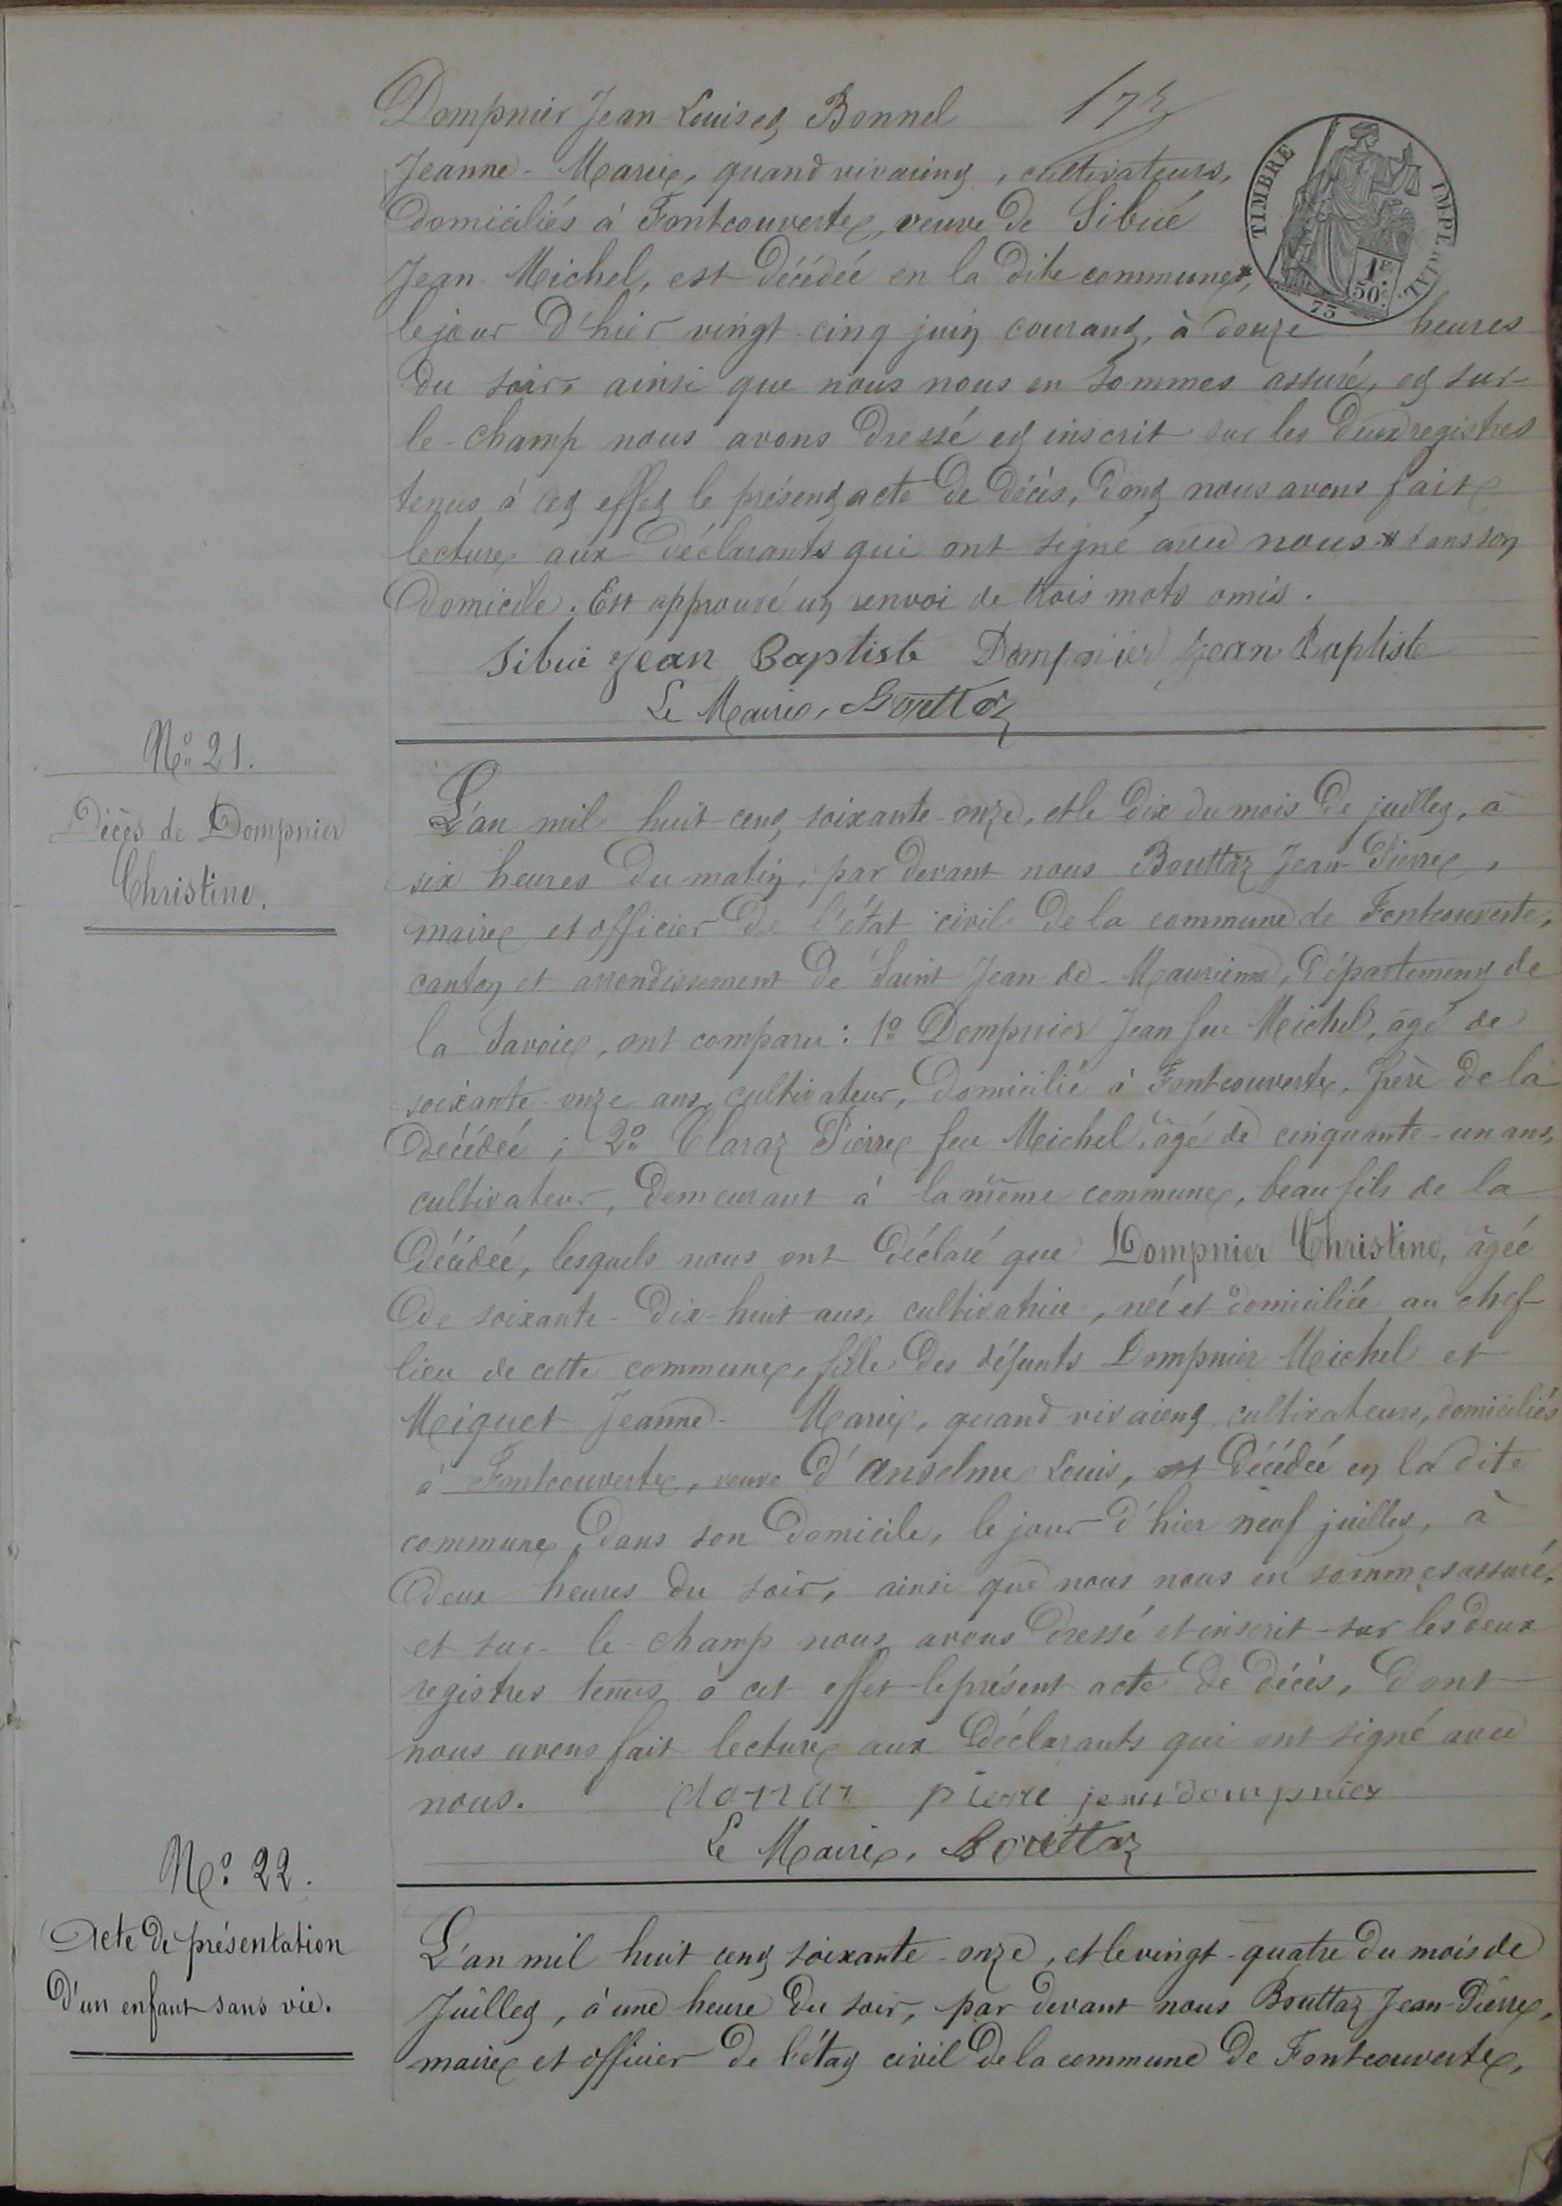 Dompnier Jean Louis et Bonnel
Jeanne-Marie, quand vivaient, cultivateurs,
domiciliés à Fontcouverte, veuve de Sibué
Jean Michel, est décédée en la dite commune*,
le jour d'hier vingt-cinq juin courant, à douze heures
du soir, ainsi que nous nous en sommes assuré, et sur-
le-champ nous avons dressé et inscrit sur les deux registres
tenus à cet effet le présent acte de décès, dont nous avons fait
lecture aux déclarants qui ont signé avec nous * dans son
domicile. Est approuvé un renvoi de trois mots omis.
Sibué Jean Baptiste Dompnier Jean Baptiste
Le Maire, Bouttaz
TIMBRE IMPERIAL
1F 50c.
73
N° 21.
Décès de Dompnier
Christine.
L'an mil huit cent soixante-onze, et le dix du mois de juillet, à
six heures du matin, par devant nous Bouttaz Jean-Pierre,
maire et officier de l'état civil de la commune de Fontcouverte,
canton et arrondissement de Saint Jean de-Maurienne, département de
la Savoie, ont comparu : 1° Dompnier Jean feu Michel, âgé de
soixante-onze ans, cultivateur, domicilié à Fontcouverte, frère de la
décédée ; 2° Claraz Pierre feu Michel, âgé de cinquante-un ans,
cultivateur, demeurant à la même commune, beau fils de la
décédée, lesquels nous ont déclaré que Dompnier Christine, âgée
de soixante-dix-huit ans, cultivatrice, née et domiciliée au chef-
lieu de cette commune, fille des défunts Dompnier Michel et
Meiguet Jeanne-Marie, quand vivaient cultivateurs, domiciliés
à Fontcouverte, veuve d'Anselme Louis, est décédée en la dite
commune, dans son domicile, le jour d'hier neuf juillet, à
deux heures du soir, ainsi que nous nous en sommes assuré,
et sur-le-champ nous avons dressé et inscrit sur les deux
registres tenus à cet effet le présent acte de décès, dont
nous avons fait lecture aux déclarants qui ont signé avec
nous. pierre jean dompnier
Le Maire, Bouttaz
N° 22.
Acte de présentation
d'un enfant sans vie.
L'an mil huit cent soixante-onze, et le vingt-quatre du mois de
Juillet, à une heure du soir, par devant nous Bouttaz Jean-Pierre,
maire et officier de l'état civil de la commune de Fontcouverte,